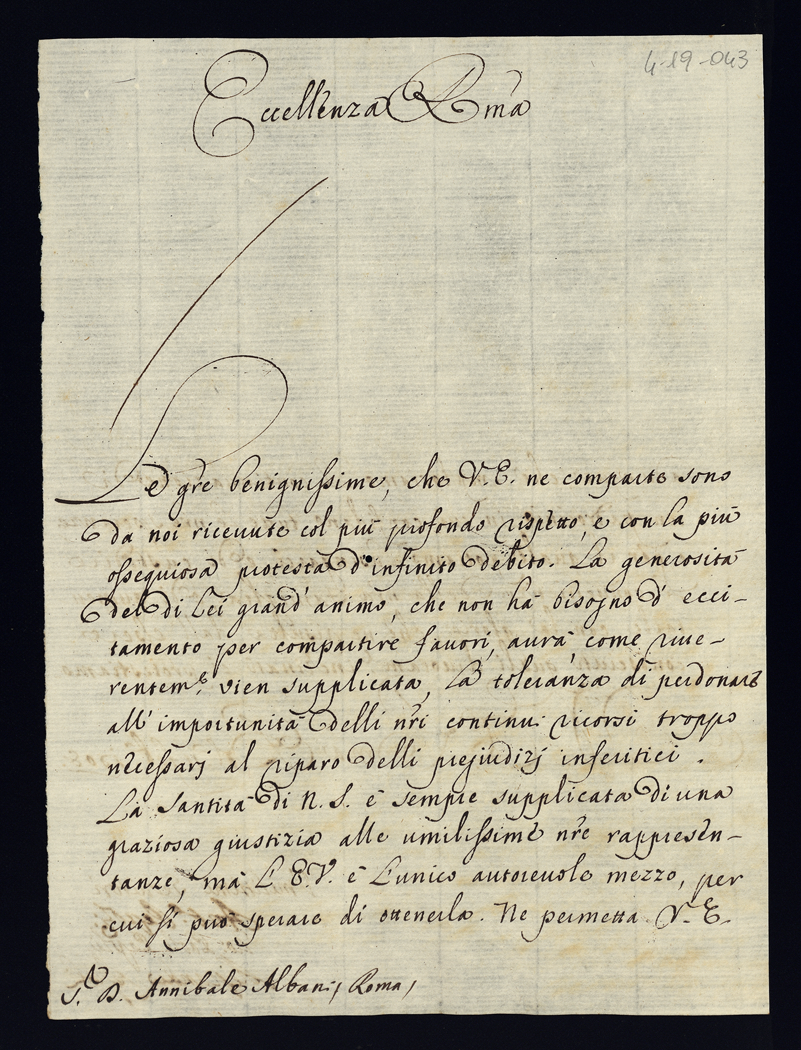 4-19-043
Eccellenza Rma
Le gre benignissime, che V.E. ne comparte sono
da noi riceuute col più profondo rispetto, e con la più
ossequiosa protesta d'infinito debito. La generosità
del di Lei grand'animo, che non hà bisogno d'ecci-
tamento per compartire fauori, aurà, come riue-
rentem.e vien supplicata, la toleranza di perdonare
all'importunità delli nri continui ricorsi troppo
necessarj al riparo delli prejudizj inferitici.
La Santità di N. S. è sempre supplicata di una
graziosa giustizia alle umilissime nre rappresen-
tanze, mà l'E.V. è l'unico autoreuole mezzo, per
cui si può sperare di ottenerla. Ne permetta V.E.
S.r D. Annibale Albani, Roma,